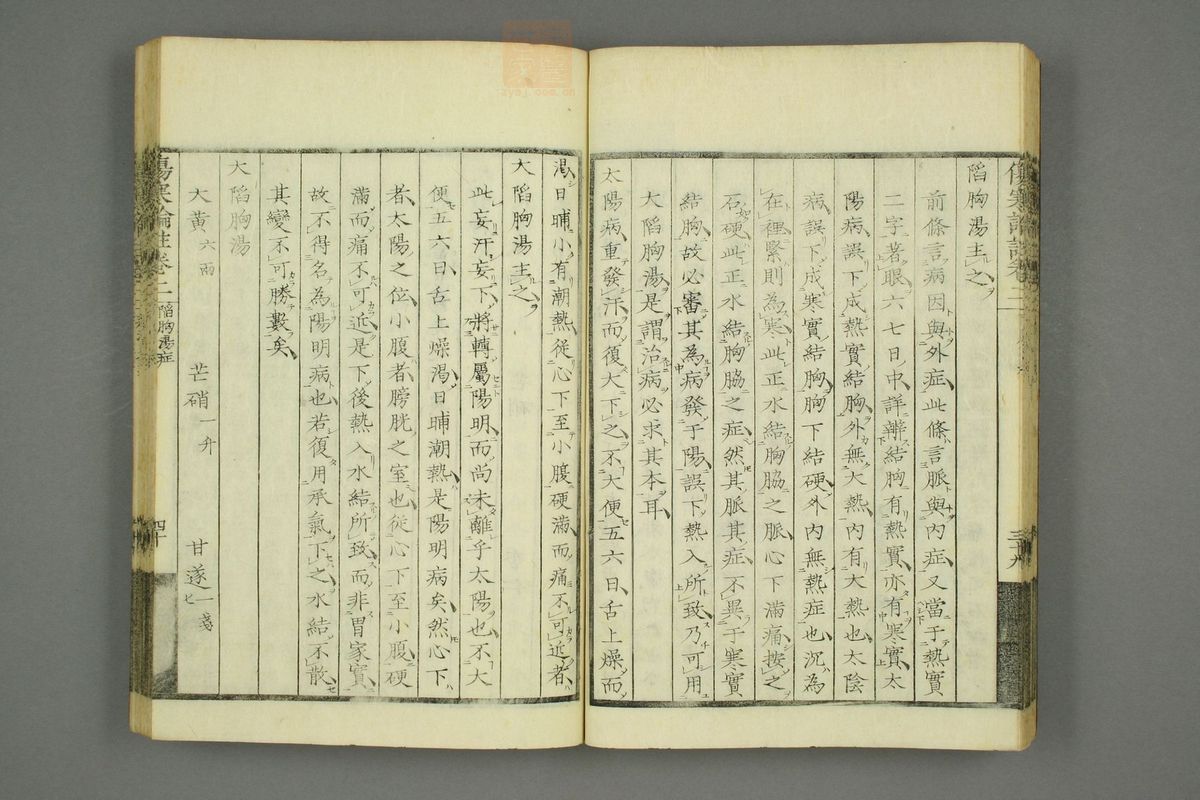 陷胸湯主之
前條言病因與外症此條言脈與內症又當于熱實
二字著眼六七日中詳辨結胸有熱實亦有寒實太
陽病誤下成熱實結胸外無大熱內有大熱也太陰
病誤下成寒實結胸胸下結硬外內無熱症也沉為
在裡緊則為寒此正水結胸脇之脈心下滿痛按之
石硬此正水結胸脇之症然其脈其症不異于寒實
結胸故必審其為病發于陽誤下熱入所致乃可用
大陷胸湯是謂治病必求其本耳
太陽病重發汗而復大下之不大便五六日舌上燥而
渴日晡小有潮熱從心下至小腹硬滿而痛不可近者
大陷胸湯主之
此妄汗妄下將轉屬陽明而尚未離乎太陽也不大
便五六日舌上燥渴日晡潮熱是陽明病矣然心下
者太陽之位小腹者膀胱之室也從心下至小腹硬
滿而痛不可近是下後熱入水結所致而非胃家實
故不得名為陽明病也若復用承氣下之水結不散
其變不可勝數矣
大陷胸湯
大黃六兩 芒硝一升 甘遂一錢匕
傷寒論註卷二 陷胸湯症 四十